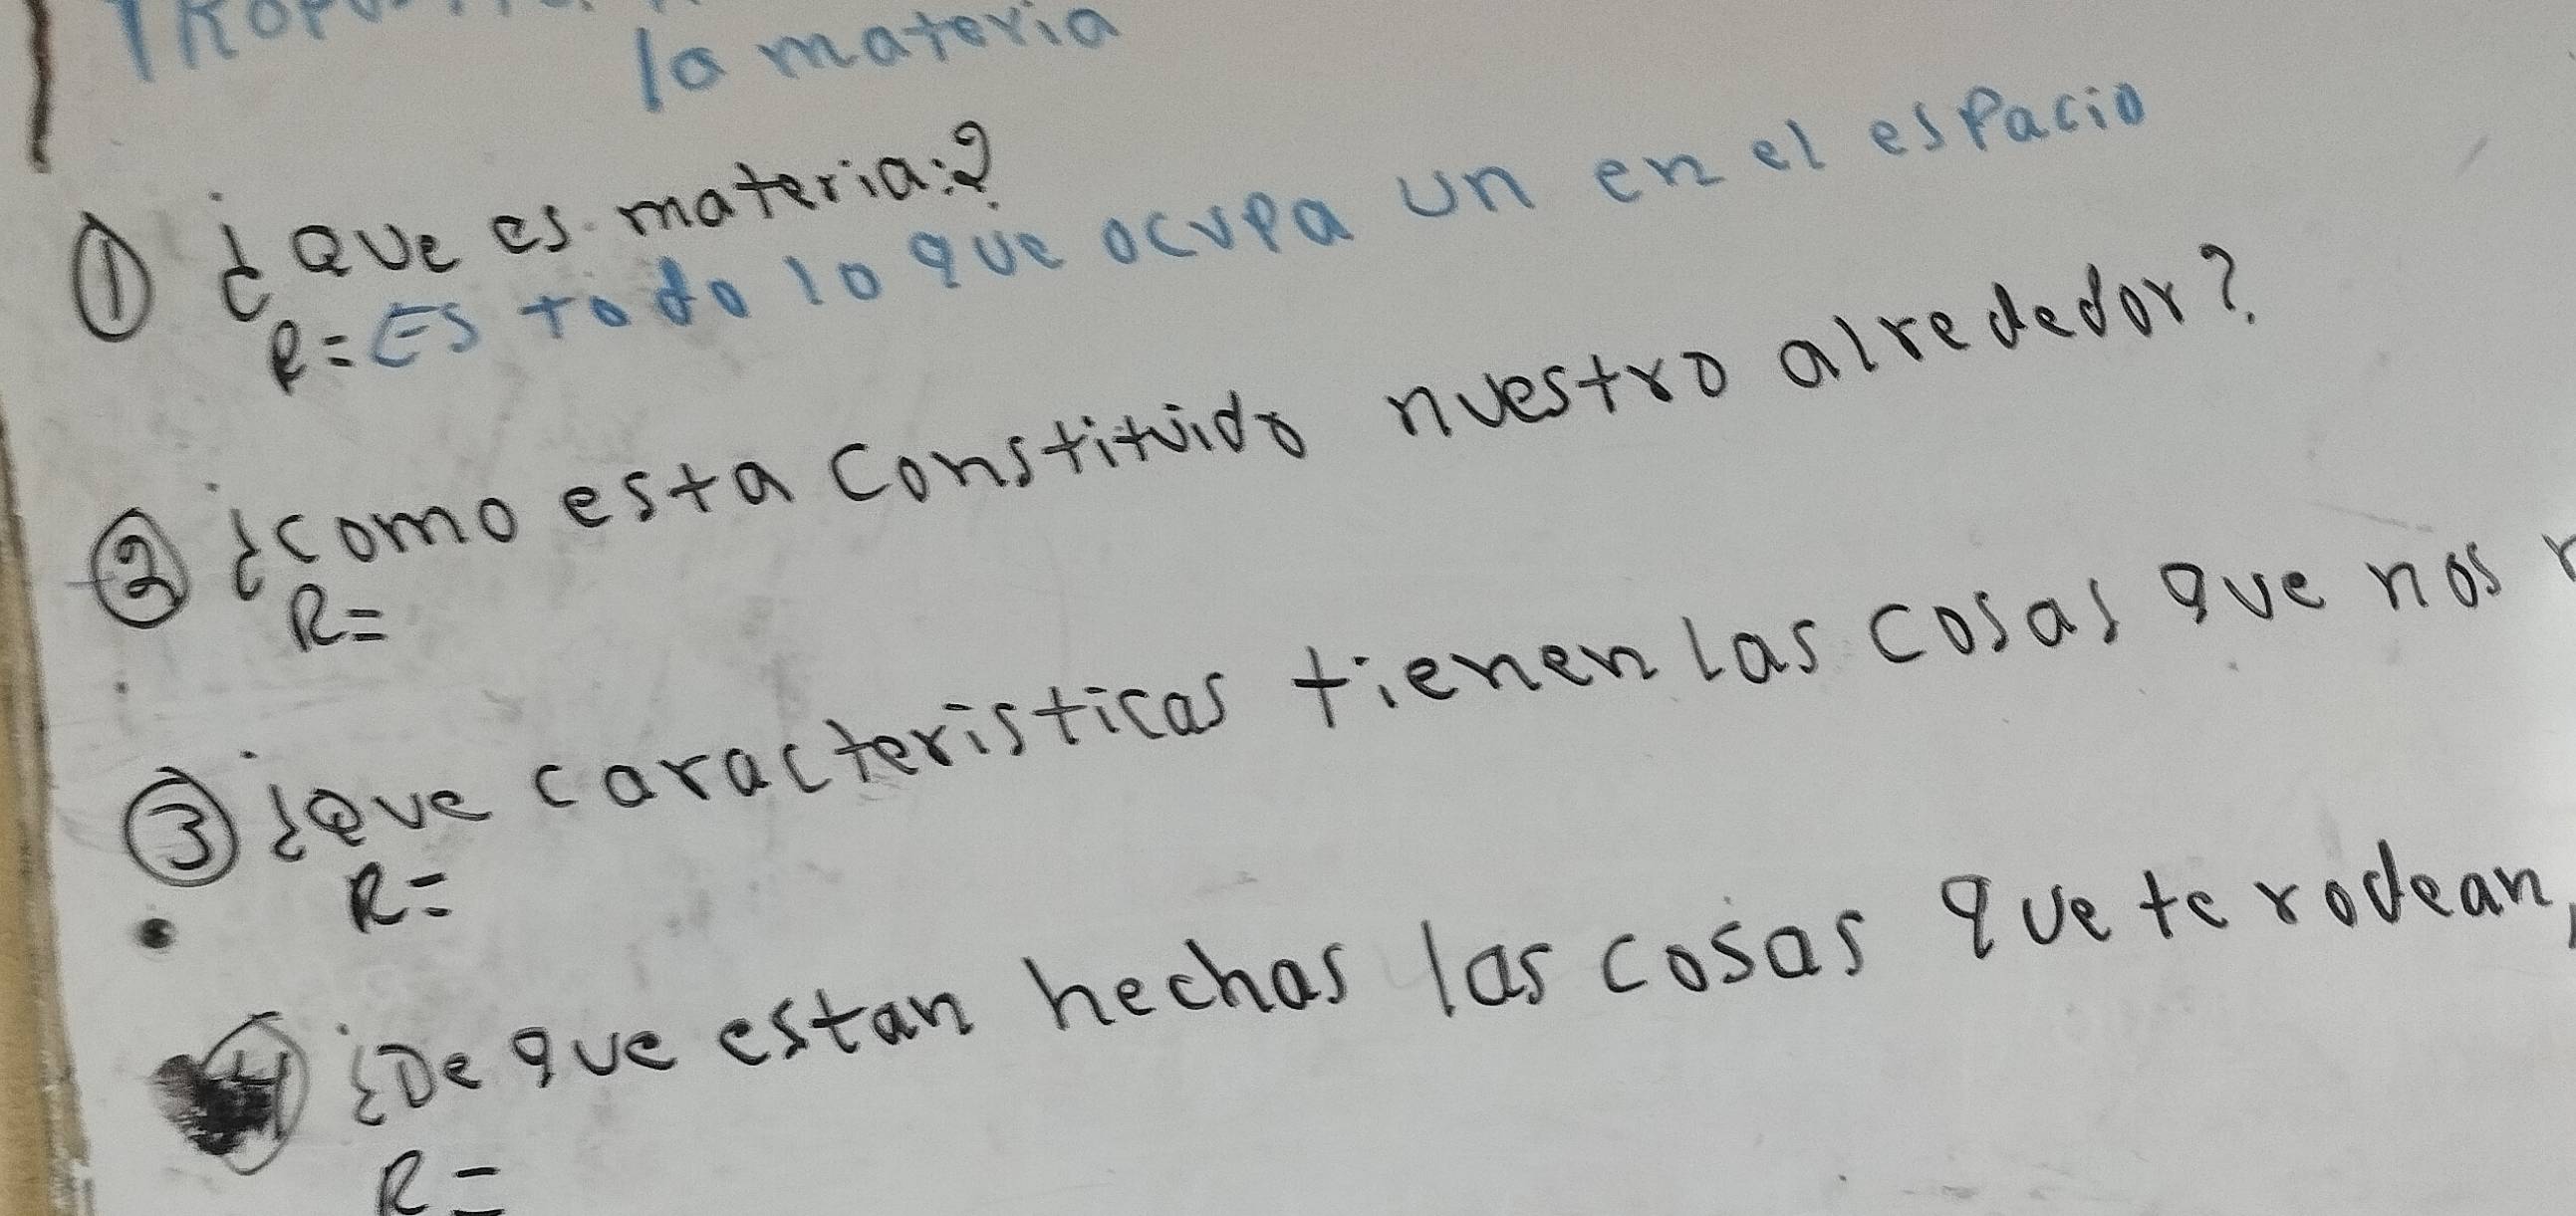 la materia
① ¿Que es materia:?
R= Es todo lo que ocupa un en el espacio
② ¿como esta constituido nuestro alrededor?
R=
③ ¿Que caracteristicas tienen las cosas que nos
R=
4 ¿De que estan hechas las cosas que te rodean,
R=